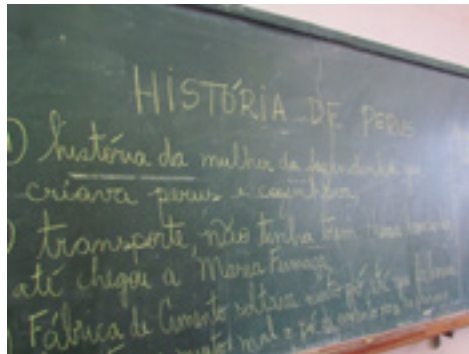 HISTÓRIA DE PERUS
) história da mulher da fazendinha que
criava perus e cozinhava
) transporte, não tinha trem
até chegou a Maria Fumaça
) Fábrica de Cimento soltava muito pó, até que
muito mal o pó